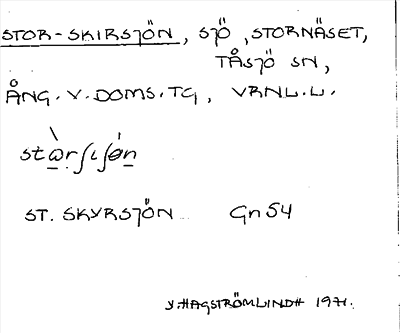 STOR-SKIRSJÖN, SJÖ, STORNÄSET,
TÅSJÖ SN,
ÅNG. V. DOMS. TG, VRNL. L.
ST. SKYRSJÖN Gn 54
V. HAGSTRÖMLINDH 1971.